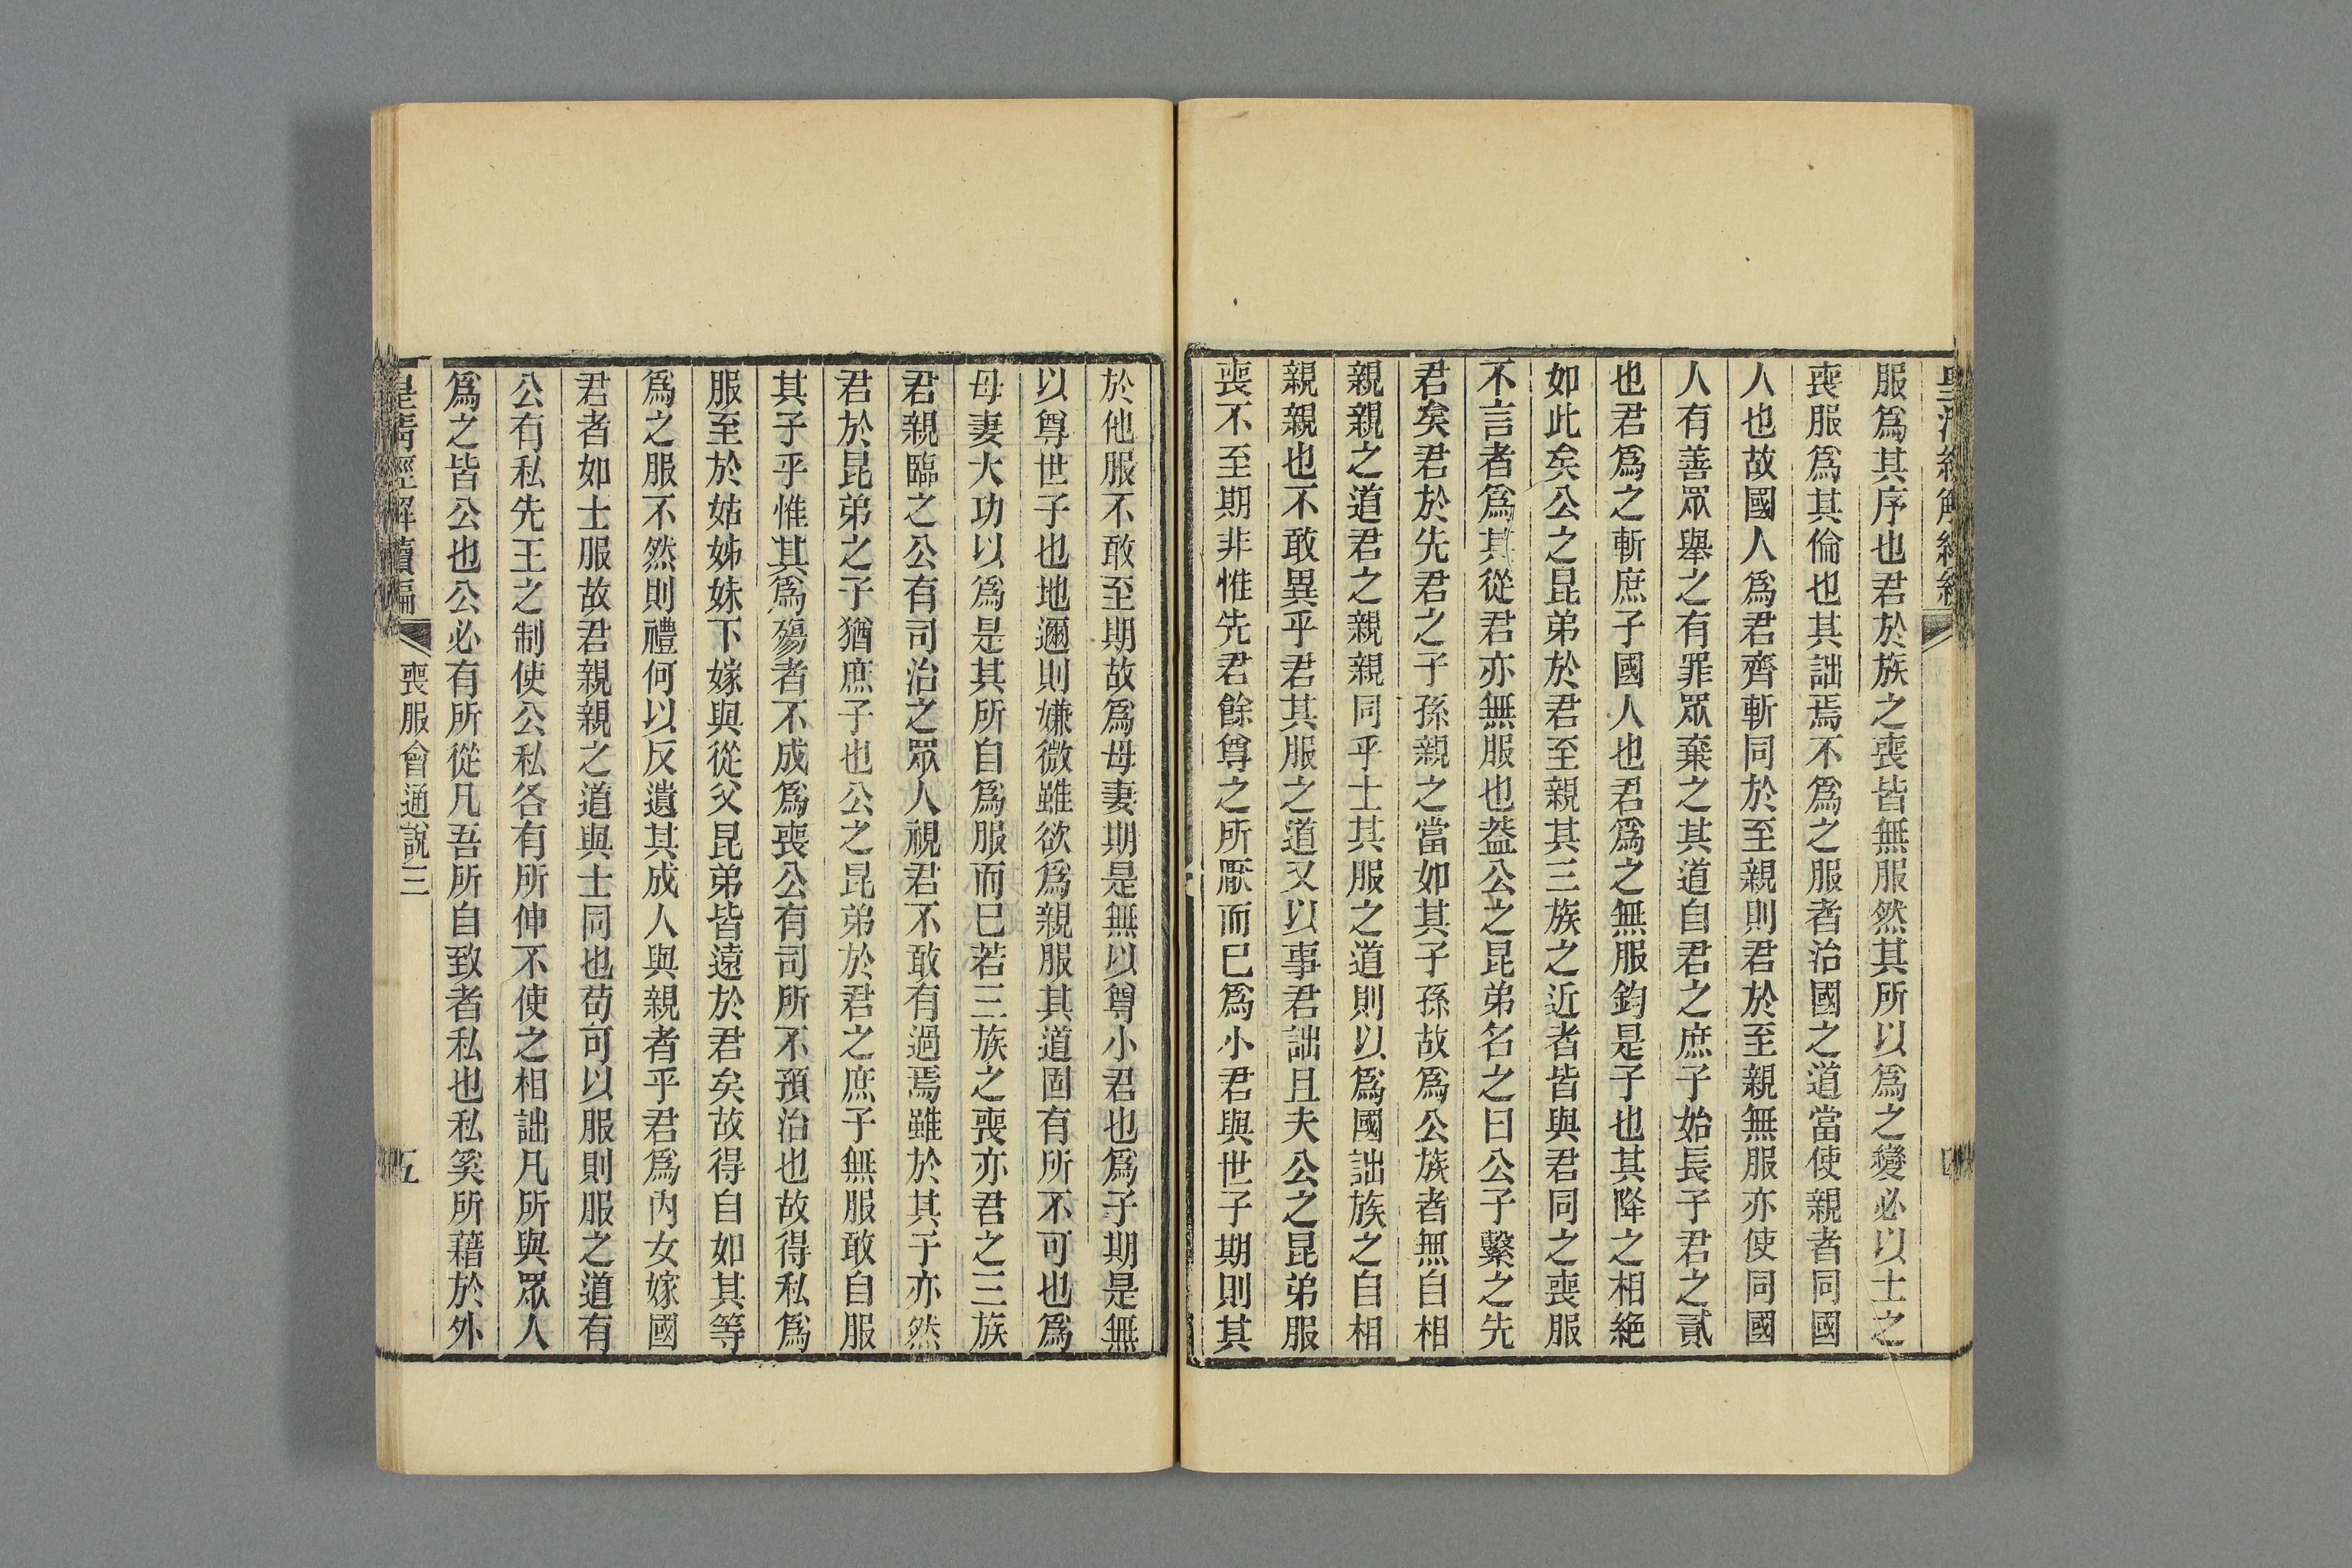 服爲其序也君於族之喪皆無服然其所以爲之變必以士之
喪服爲其倫也其詘焉不爲之服者治國之道當使親者同國
人也故國人爲君齊斬同於至親則君於至親無服亦使同國
人有善眾舉之有罪眾棄之其道自君之庶子始長子君之貳
也君爲之斬庶子國人也君爲之無服鈞是子也其降之相絶
如此矣公之昆弟於君至親其三族之近者皆與君同之喪服
不言者爲其從君亦無服也葢公之昆弟名之曰公子繫之先
君矣君於先君之子孫親之當如其子孫故爲公族者無自相
親親之道君之親親同乎士其服之道則以爲國詘族之自相
親親也不敢異乎君其服之道又以事君詘且夫公之昆弟服
喪不至期非惟先君餘尊之所厭而已爲小君與世子期則其
於他服不敢至期故爲母妻期是無以尊小君也爲子期是無
以尊世子也地邇則嫌微雖欲爲親服其道固有所不可也爲
母妻大功以爲是其所自爲服而已若三族之喪亦君之三族
君親臨之公有司治之眾人視君不敢有過焉雖於其子亦然
君於昆弟之子猶庶子也公之昆弟於君之庶子無服敢自服
其子乎惟其爲殤者不成爲喪公有司所不預治也故得私爲
服至於姑姊妹下嫁與從父昆弟皆遠於君矣故得自如其等
爲之服不然則禮何以反遺其成人與親者乎君爲內女嫁國
君者如士服故君親親之道與士同也苟可以服則服之道有
公有私先王之制使公私各有所伸不使之相詘凡所與眾人
爲之皆公也公必有所從凡吾所自致者私也私奚所藉於外
皇清經解續編
喪服會通說三
五